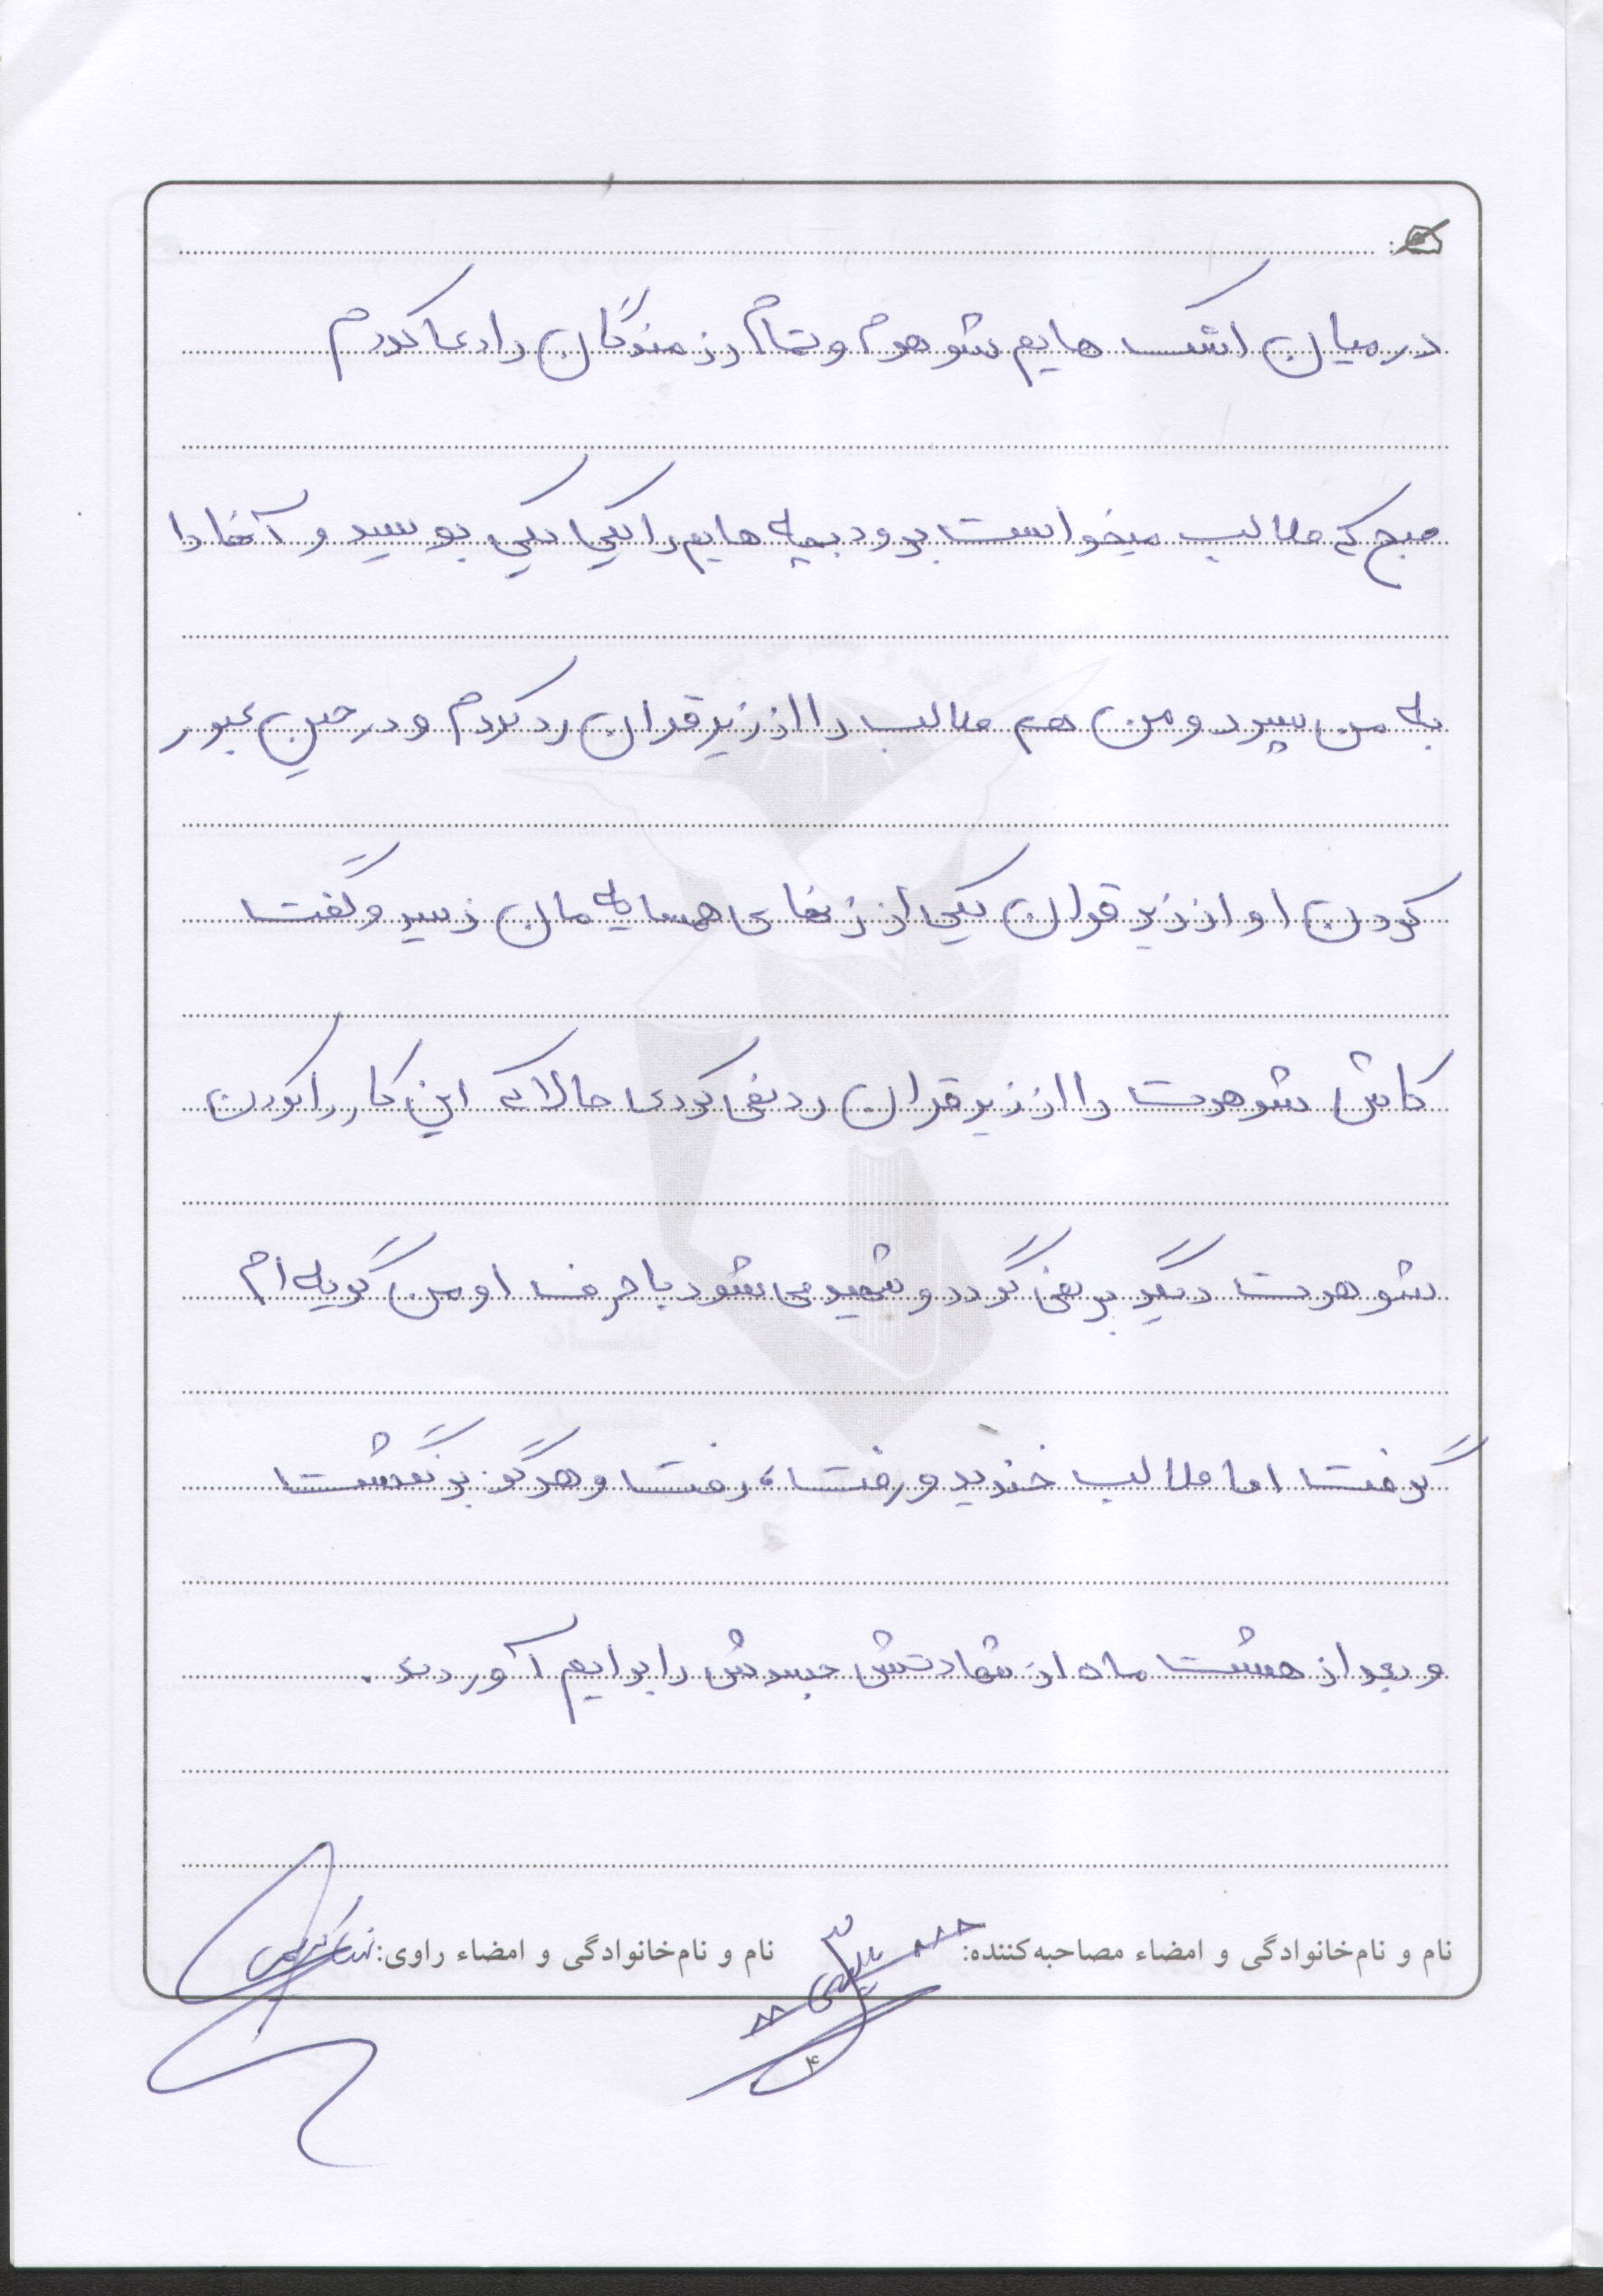 در میان اشک هایم شوهرم و تمام رزمندگان را دعا کردم
صبح که طالب میخواست برود بچه هایم را یکی یکی بوسید و آنها را
به من سپرد و من هم طالب را از زیر قران رد کردم و در حین عبور
کردن او از زیر قران یکی از زنهای همسایه مان رسید و گفت
کاش شوهرت را از زیر قران رد نمی کردی حالا که این کار را کردن
شوهرت دیگر بر نمی گردد و شهید می شود با حرف او من گریه ام
گرفت اما طالب خندید و رفت، رفت و هرگز برنگشت
و بعد از هشت ماه از شهادتش جسدش را برایم آوردند.
نام و نام‌خانوادگی و امضاء مصاحبه‌کننده: نام و نام‌خانوادگی و امضاء راوی:
۴